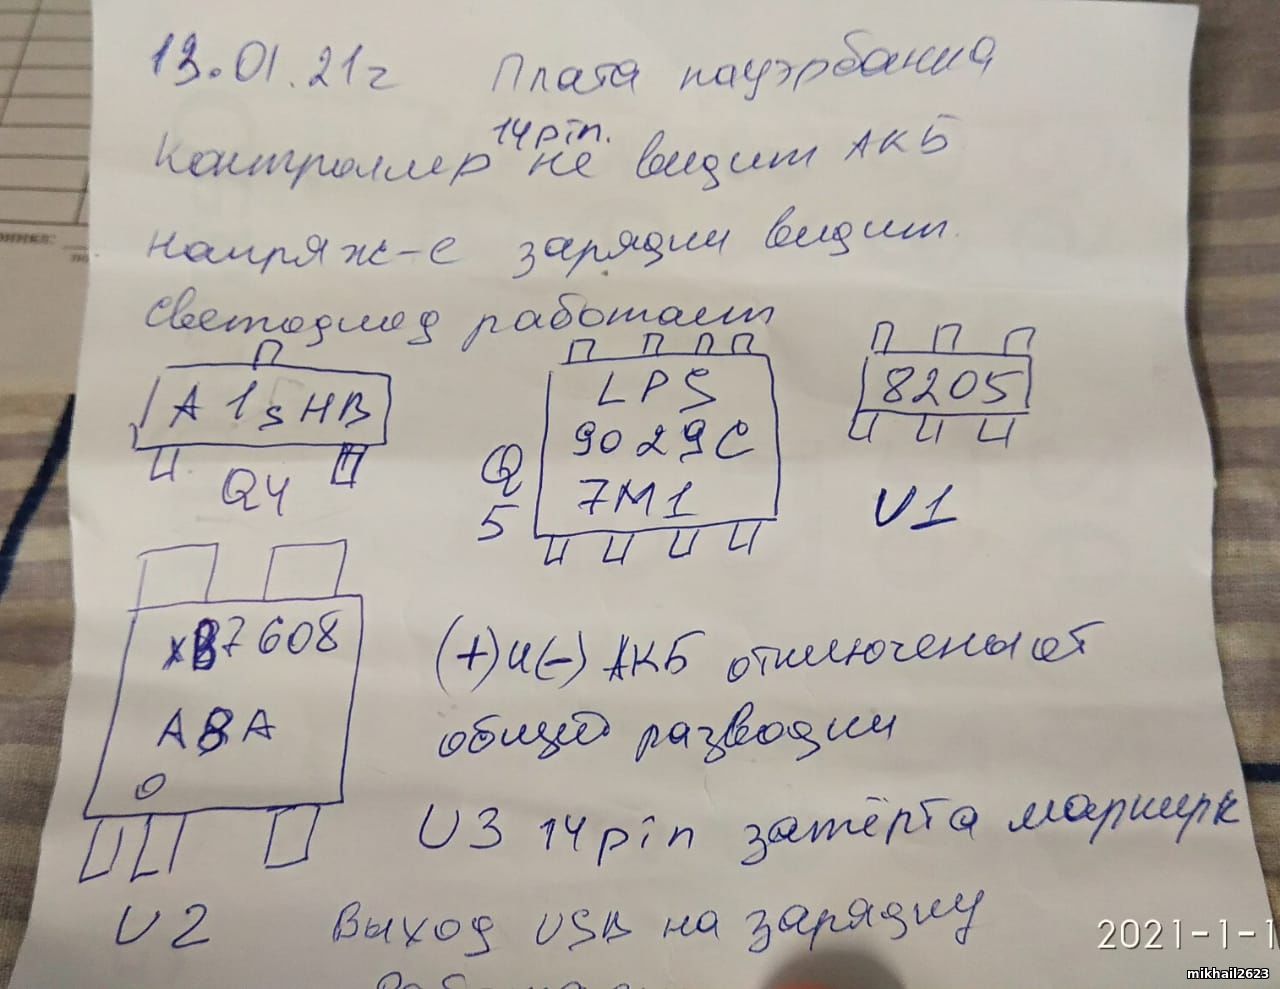 13.01.21г Плата пауэрбанка
14pin.
Контроллер не видит АКБ
Напряж-е зарядки видит.
Светодиод работает
A1sHB
Q4
LPS
9029C
7M1
Q
5
8205
U1
XB7608
A8A
U2
(+)и(-) АКБ отключены от
общей разводки
U3 14pin затёрта маркирк
Выход USB на зарядку
2021-1-1
mikhail2623